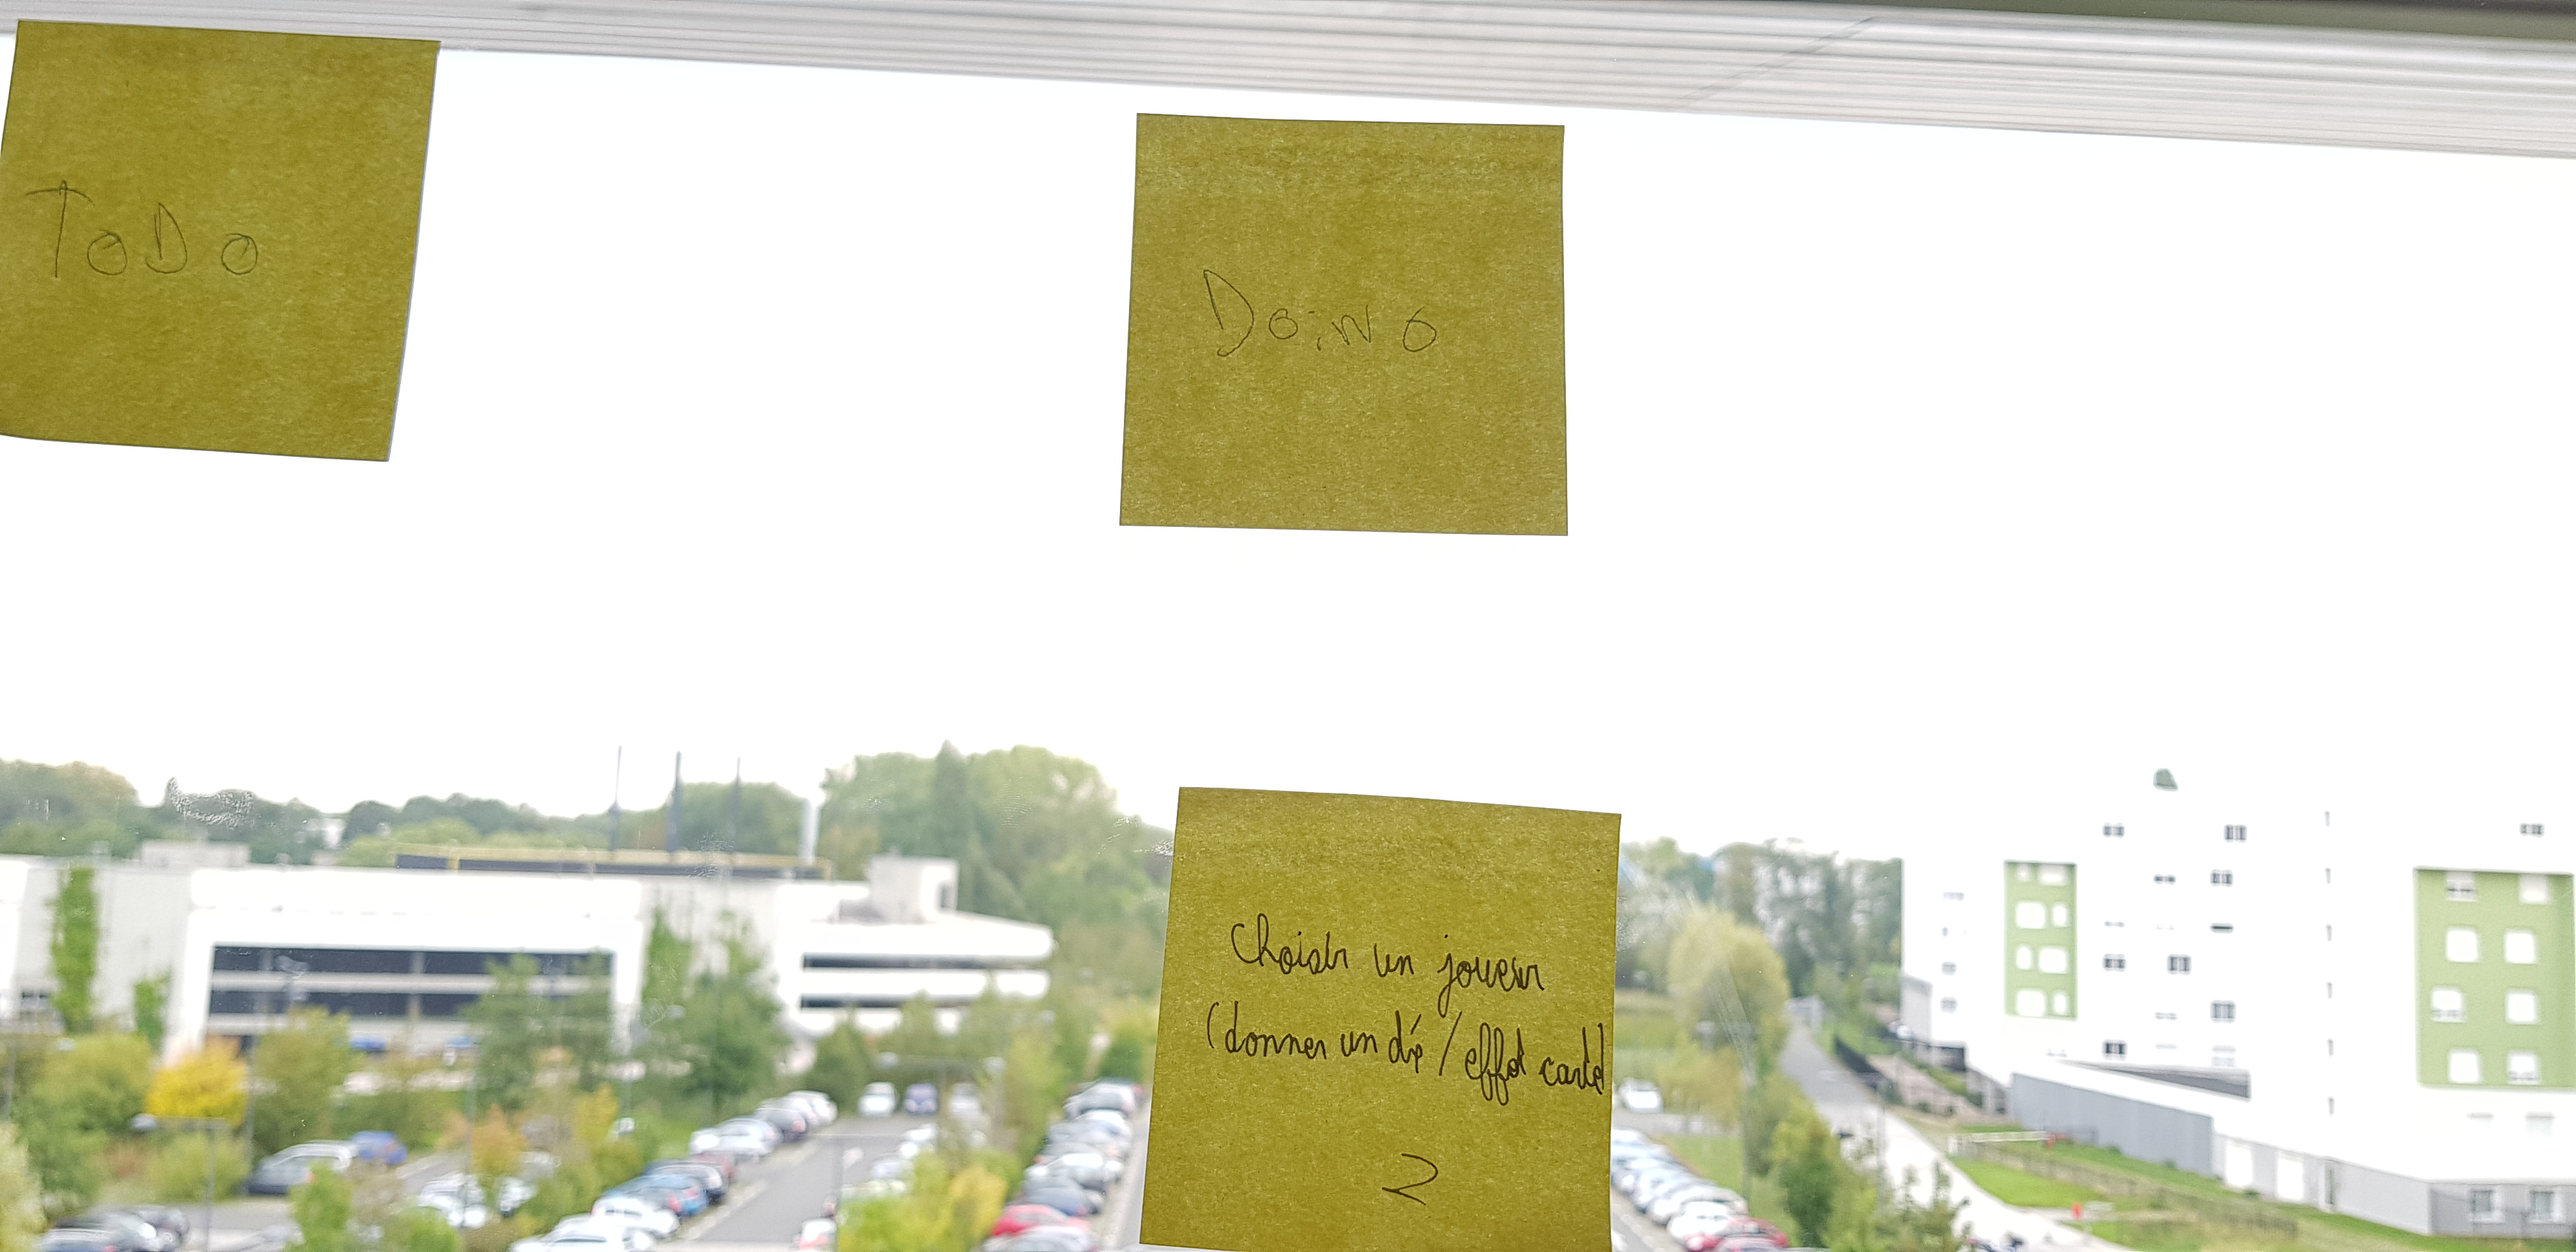 ToDo
Doing
Choisir un joueur
(donner un dé / effet carte)
2